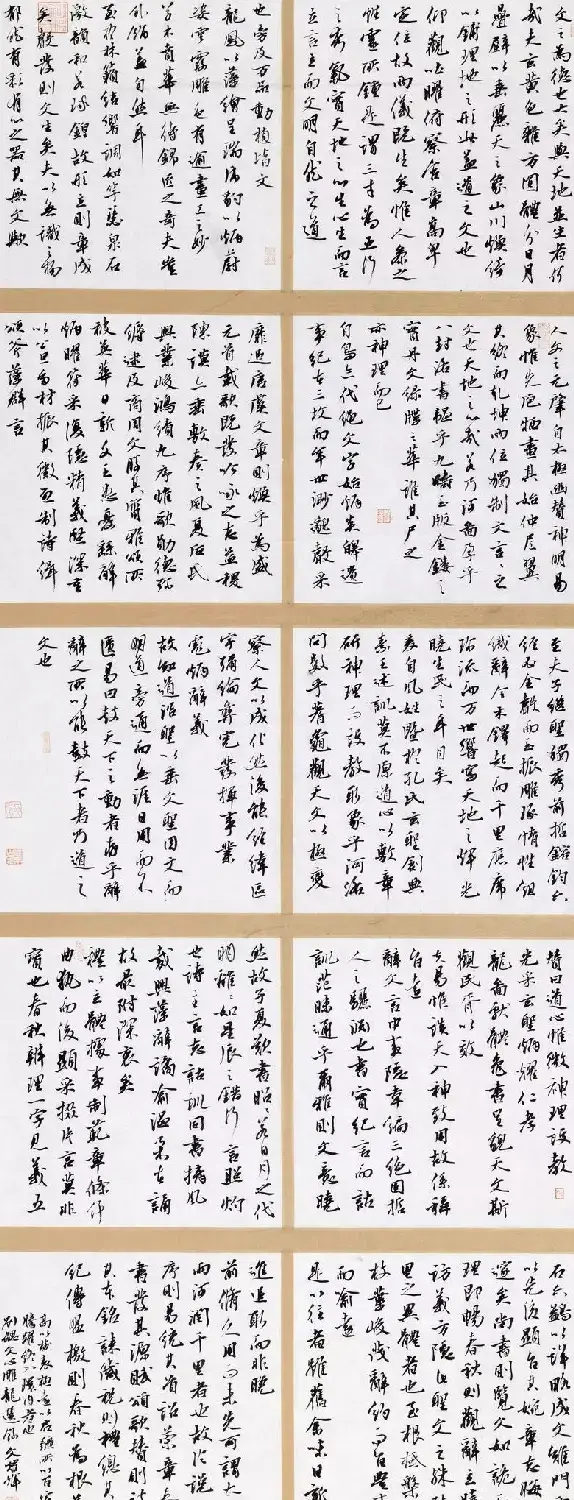 文之為德也大矣與天地並生者何
哉夫玄黃色雜方圓體分日月
疊璧以垂麗天之象山川煥綺
以鋪理地之形此蓋道之文也
仰觀吐曜俯察含章高卑
定位故兩儀既生矣惟人參之
性靈所鍾是謂三才為五行
之秀氣實天地之心生心生而言
立言立而文明自然之道
也傍及萬品動植皆文
龍鳳以藻繪呈瑞虎豹以炳蔚
姿雲霞雕色有逾畫工之妙
草木賁華無待錦匠之奇夫豈
外飾蓋自然耳
至於林籟結響調如竽瑟泉石
激韻和若球鍠故形立則章成
矣聲發則文生矣夫以無識之物
鬱然有彩有心之器其無文歟
人文之元肇自太極幽贊神明易
象惟先庖犧畫其始仲尼翼
其終而乾坤兩位獨制文言言之
文也天地之心哉若乃河圖孕乎
八卦洛書韞乎九疇玉版金鏤之
實丹文綠牒之華誰其尸之
亦神理而已
自鳥跡代繩文字始炳炎皞遺
事紀在三墳而年世渺邈聲采
靡追唐虞文章則煥乎為盛
元首載歌既發吟詠之志益稷
陳謨亦垂敷奏之風夏后氏
興業峻鴻績九序惟歌勳德彌
縟逮及商周文勝其質雅頌所
被英華日新文王患憂繇辭
炳曜符采復隱精義堅深重
以公旦多材振其徽烈制詩緝
頌斧藻群言
至夫子繼聖獨秀前哲鎔鈞六
經必金聲而玉振雕琢情性組
織辭令木鐸起而千里應席
珍流而萬世響寫天地之輝光
曉生民之耳目矣
爰自風姓暨於孔氏玄聖創典
素王述訓莫不原道心以敷章
研神理而設教取象乎河洛
問數乎蓍龜觀天文以極變
察人文以成化然後能經緯區
宇彌綸彝憲發揮事業
彪炳辭義
故知道沿聖以垂文聖因文而
明道旁通而無涯日用而不
匱易曰鼓天下之動者存乎辭
辭之所以能鼓天下者乃道之
文也
贊曰道心惟微神理設教
光采玄聖炳耀仁孝
龍圖獻體龜書呈貌天文斯
觀民胥以效
夫易惟談天入神致用故係稱
旨遠
辭文言中事隱韋編三絕固哲
人之驪淵也書實紀言而詁
訓茫昧通乎爾雅則文意曉
然故子夏歎書昭昭若日月之代
明離離如星辰之錯行言照灼
也詩主言志詁訓同書摛風
裁興藻辭譎喻溫柔在誦
故最附深衷矣
禮以立體據事制範章條纖
曲執而後顯采掇片言莫非
寶也春秋辨理一字見義五
石六鷁以詳略成文雉門
以先後顯旨其婉章志晦
邃矣尚書則覽文如詭
理即暢春秋則觀辭立曉
訪義方隱此聖文之殊致
里之異體者也至根柢槃
枝葉峻茂辭約而旨豐
而喻遠
是以往者雖舊餘味日新
進追取而非晚
前脩久用而未先可謂太
雨河潤千里者也故論說
序則易統其首詔策章奏
書發其源賦頌歌贊則詩
其本銘誄箴祝則禮總其
紀傳盟檄則春秋為根